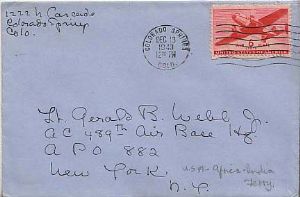 1222 N Cascade
Colorado Springs
Colo.
COLORADO SPRINGS
DEC 13
12 PM
COLO.
6
UNITED STATES OF AMERICA
Lt. Gerald B. Webb Jr.
AC 489th Air Base Hq.
APO 882
New York
N.Y.
USA-Africa-India
Ferry.